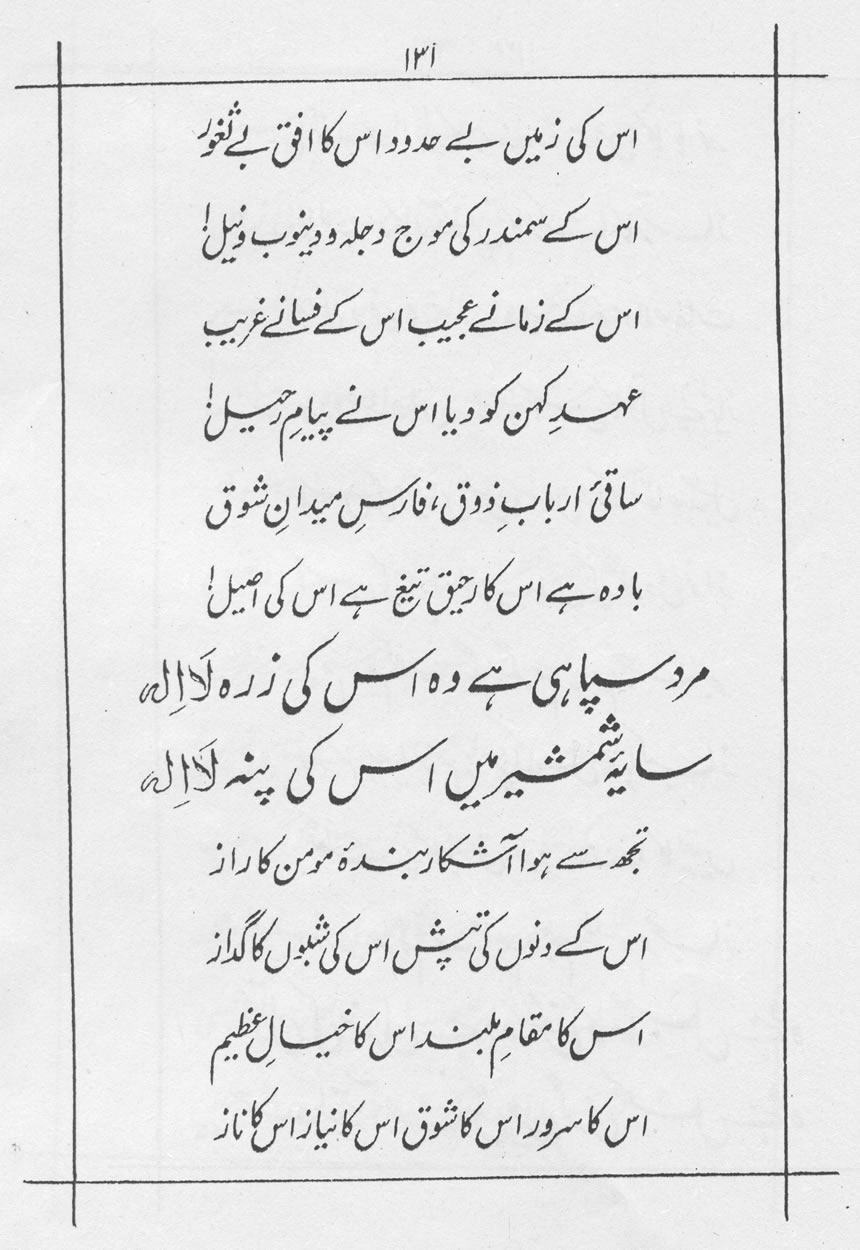 ۱۳۱
اس کی زمیں بے حدود اس کا افق بے ثغور
اس کے سمندر کی موج دجلہ و دینوب و نیل!
اس کے زمانے عجیب اس کے فسانے غریب
عہدِ کہن کو دیا اس نے پیامِ رحیل!
ساقیٔ اربابِ ذوق، فارسِ میدانِ شوق
بادہ ہے اس کا رحیق تیغ ہے اس کی اصیل!
مرد سپاہی ہے وہ اس کی زرہ لَا اِلٰہ
سایۂ شمشیر میں اس کی پنہ لَا اِلٰہ
تجھ سے ہوا آشکار بندۂ مومن کا راز
اس کے دنوں کی تپش اس کی شبوں کا گداز
اس کا مقامِ بلند اس کا خیالِ عظیم
اس کا سرور اس کا شوق اس کا نیاز اس کا ناز